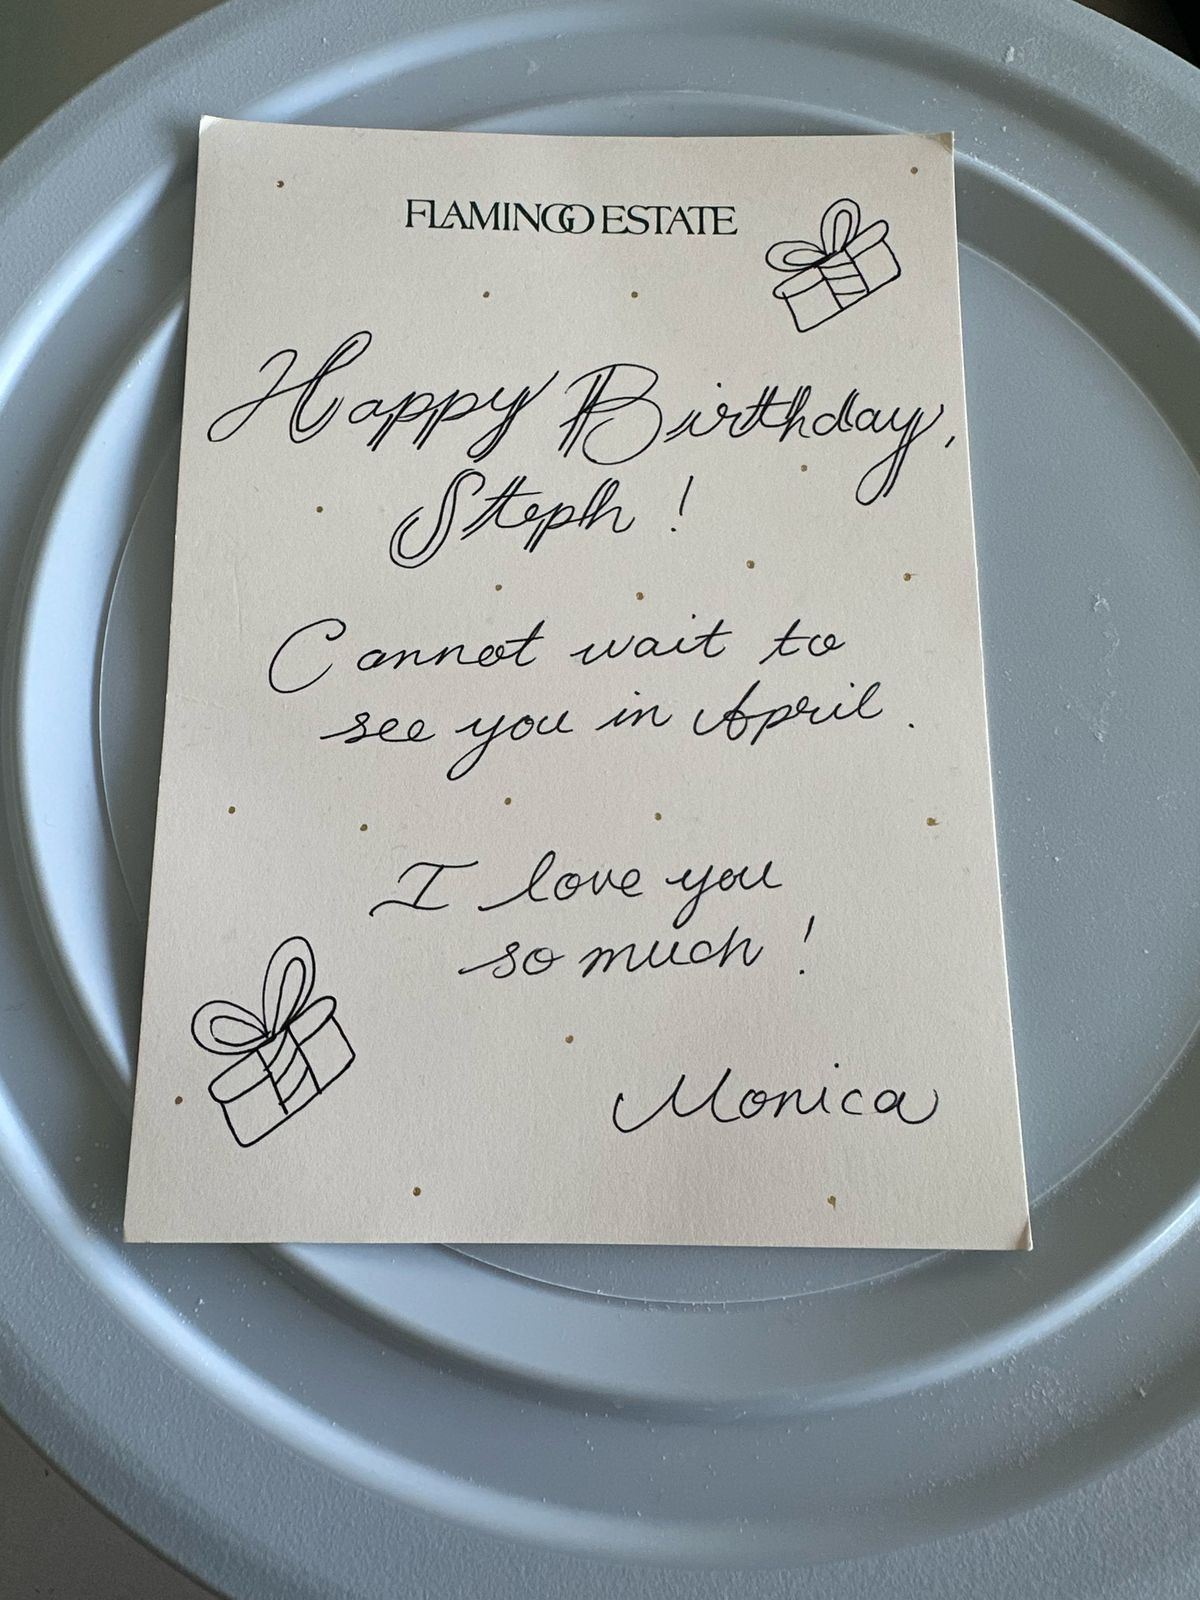 FLAMINGO ESTATE
Happy Birthday,
Steph!
Cannot wait to
see you in April.
I love you
so much!
Monica